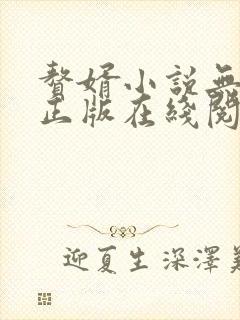 赘婿小説無
正版在綫閱
迎夏生深澤美